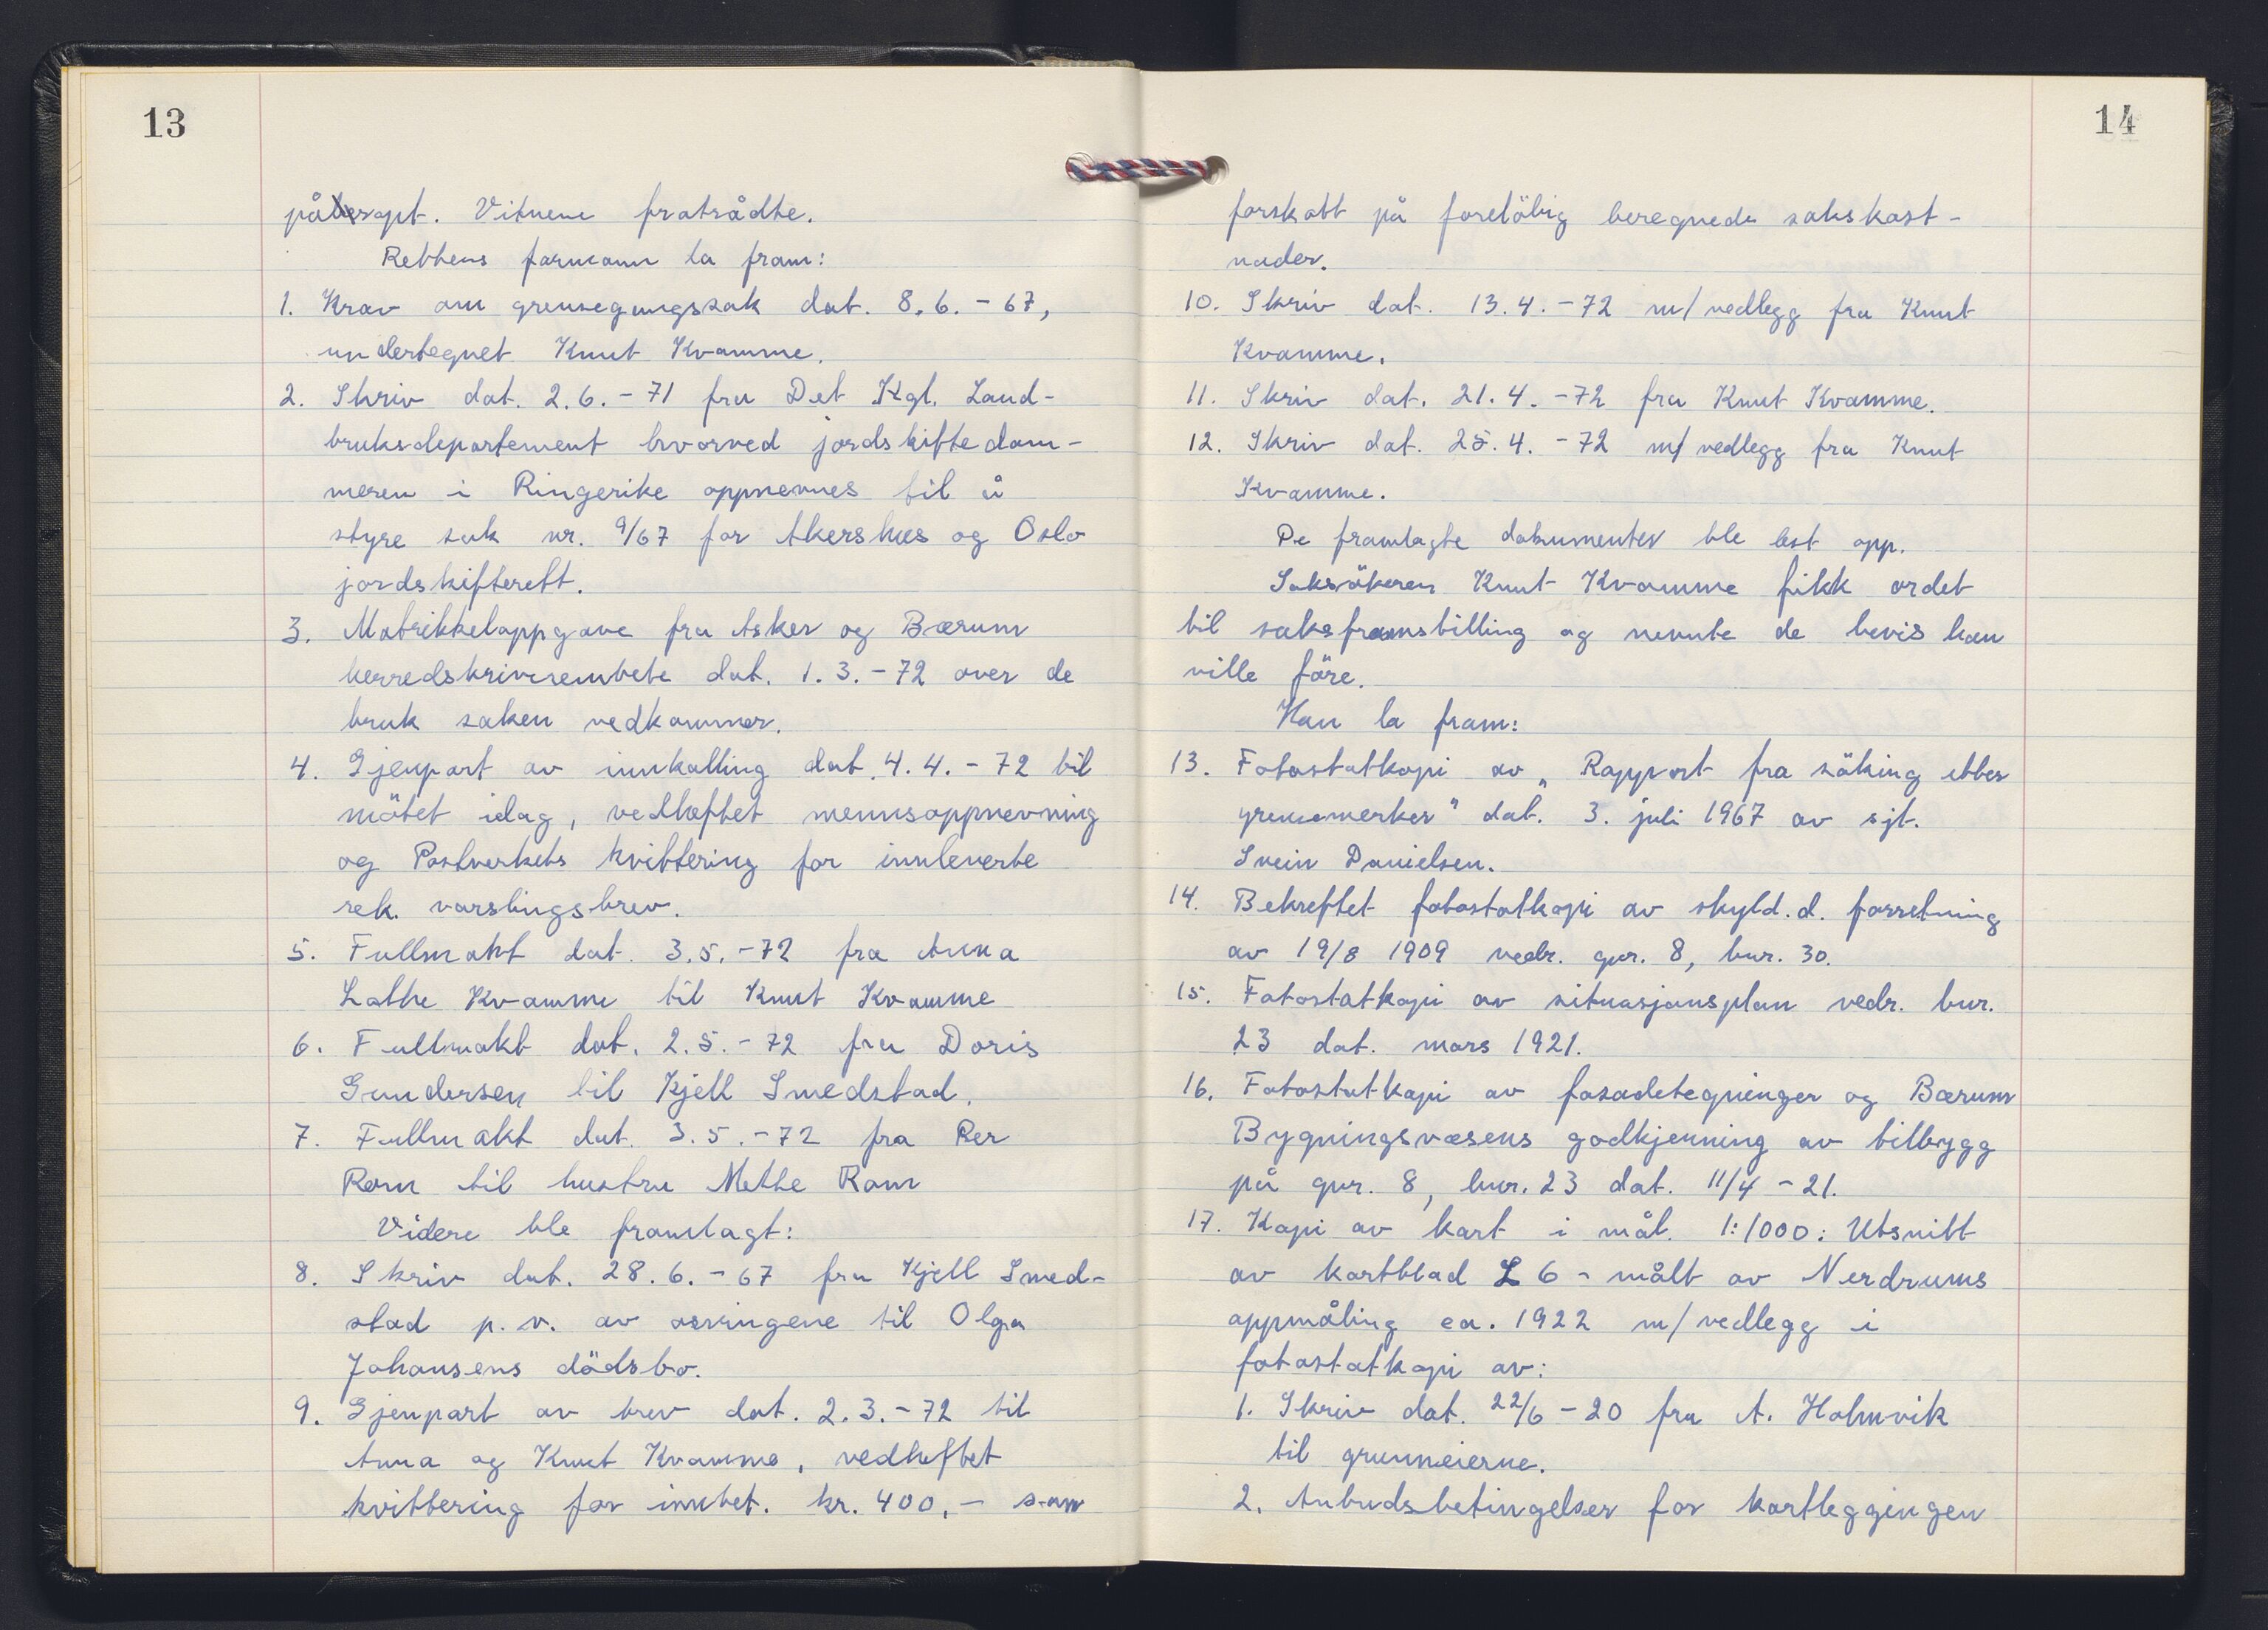 13
påberopt. Vitnene fratrådte.
Rettens formann la fram:
1. Krav om grensegangssak dat. 8.6.-67,
undertegnet Knut Kvamme.
2. Skriv dat. 2.6.-71 fra Det Kgl. Land-
bruksdepartement hvorved jordskiftedom-
meren i Ringerike oppnevnes til å
styre sak nr. 9/67 for Akershus og Oslo
jordskifterett.
3. Matrikkeloppgave fra Asker og Bærum
herredskriverembete dat. 1.3.-72 over de
bruk saken vedkommer.
4. Gjenpart av innkalling dat. 4.4.-72 til
mötet idag, vedheftet mennsoppnevning
og Postverkets kvittering for innleverte
rek. varslingsbrev.
5. Fullmakt dat. 3.5.-72 fra Anna
Lothe Kvamme til Knut Kvamme
6. Fullmakt dat. 2.5.-72 fra Doris
Gundersen til Kjell Smedstad.
7. Fullmakt dat. 3.5.-72 fra Per
Rom til hustru Mette Rom
Videre ble framlagt:
8. Skriv dat. 28.6.-67 fra Kjell Smed-
stad p.v. av arvingene til Olga
Johansens dödsbo.
9. Gjenpart av brev dat. 2.3.-72 til
Anna og Knut Kvamme, vedheftet
kvittering for innbet. kr. 400,- som
14
forskott på forelöbig beregnede sakskost-
nader.
10. Skriv dat. 13.4.-72 m/vedlegg fra Knut
Kvamme.
11. Skriv dat. 21.4.-72 fra Knut Kvamme.
12. Skriv dat. 25.4.-72 m/vedlegg fra Knut
Kvamme.
De framlagte dokumenter ble lest opp.
Saksökeren Knut Kvamme fikk ordet
til saksframstilling og nevnte de bevis han
ville före.
Han la fram:
13. Fotostatkopi av „Rapport fra söking etter
grensemerker" dat. 3. juli 1967 av sjt.
Svein Danielsen.
14. Bekreftet fotostatkopi av skyld.d. forretning
av 19/8 1909 vedr. gnr. 8, bnr. 30.
15. Fotostatkopi av situasjonsplan vedr. bnr.
23 dat. mars 1921.
16. Fotostatkopi av fasadetegninger og Bærum
Bygningsvæsens godkjenning av tilbygg
på gnr. 8, bnr. 23 dat. 11/4-21.
17. Kopi av kart i mål. 1:1000: Utsnitt
av kartblad L 6 - målt av Nerdrums
oppmåling ca. 1922 m/vedlegg i
fotostatkopi av:
1. Skriv dat. 22/6-20 fra A. Holmvik
til grunneierne.
2. Anbudsbetingelser for kartleggingen